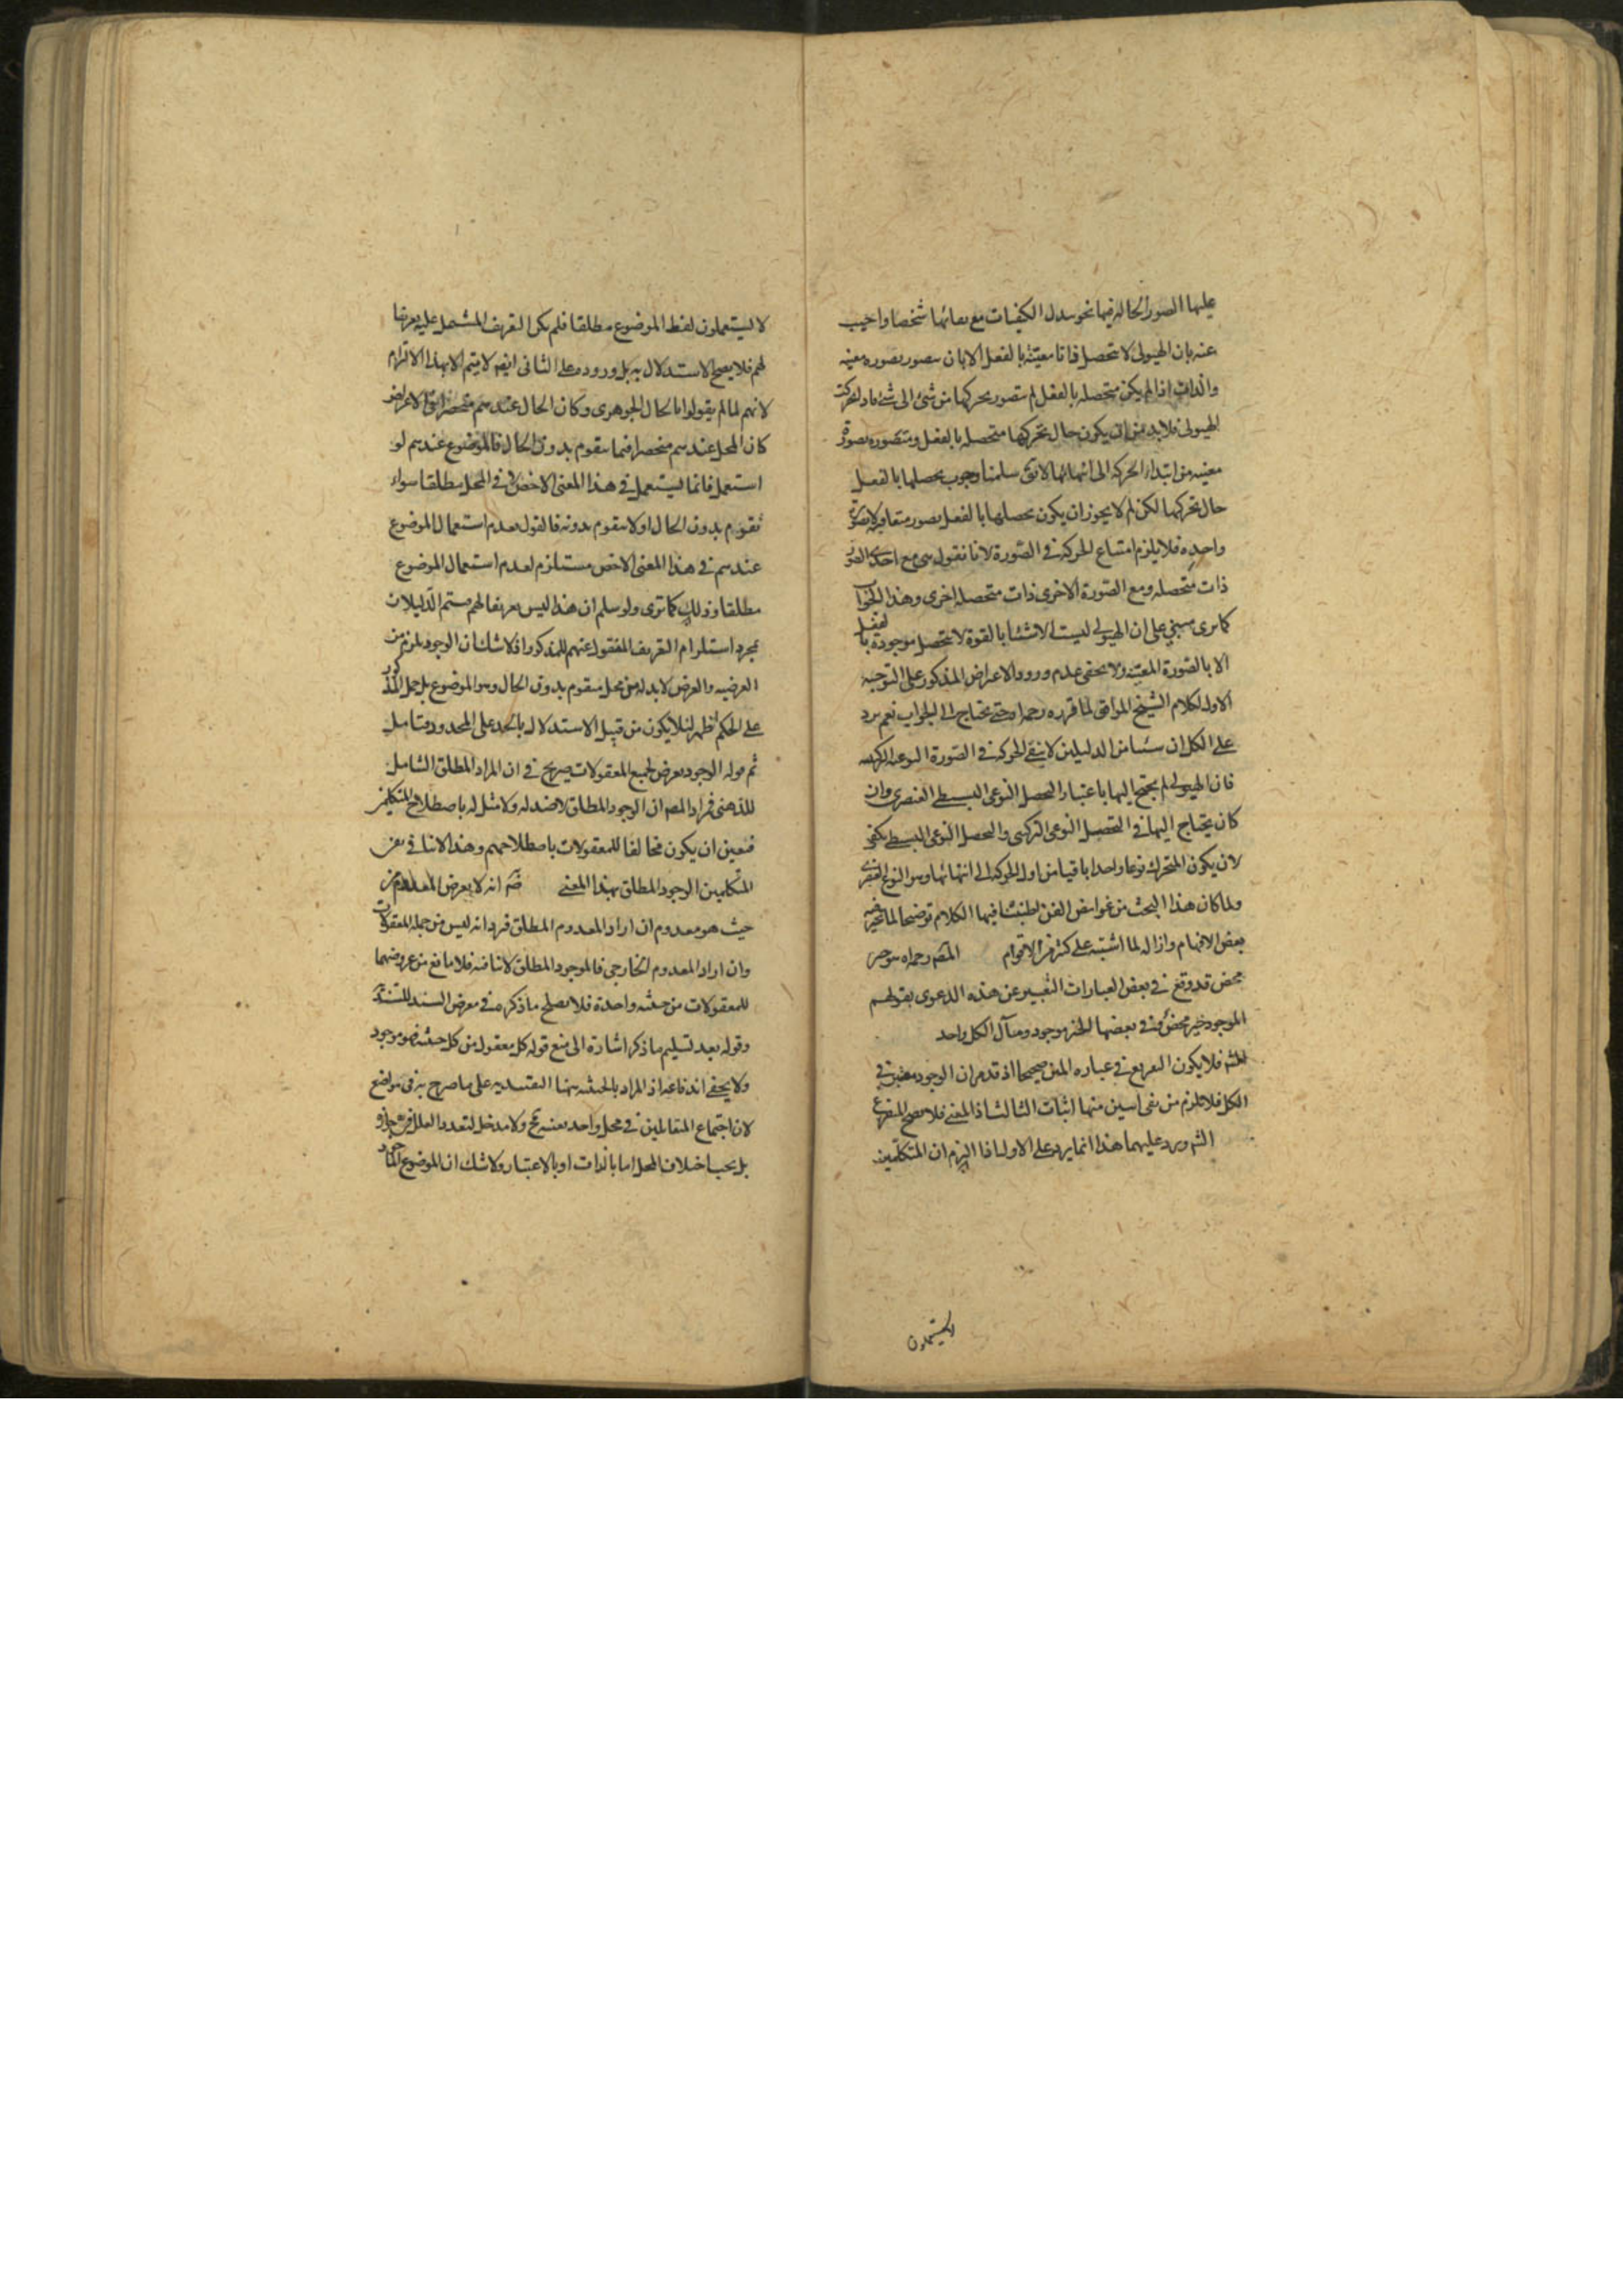 عليها الصور الحالة فيها نحو تبدل الكيفيات مع بقائها شخصا واجيب
عنه بان الهيولى لا تتحصل ذاتا معيّنة بالفعل الا بان تتصور بصورة معينه
والذات اذا لم يكن متحصله بالفعل لم يتصور تحركها من شئ الى شئ فاذا تحركت
الهيولى فلا بد من ان يكون حال تحركها متحصله بالفعل ومتصوره بصورة
معينه من ابتداء الحركه الى انتهائها لا يق سلمنا وجوب تحصلها بالفعل
حال تحركها لكن لم لا يجوز ان يكون تحصلها بالفعل بصور متعاقبة لا بصورة
واحدة فلا يلزم امتناع الحركه في الصّورة لانا نقول هى مع احدى الصور
ذات متحصله ومع الصّورة الاخرى ذات متحصله اخرى وهذا الجواب
كما ترى مبني على ان الهيولى ليست الا شيئا بالقوة لا تتحصل موجودة بالفعل
الا بالصّورة المعيّنه ولا يخفى عدم ورود الاعتراض المذكور على التوجيه
الاول لكلام الشيخ الموافق لما قرره رحمه الله حتى يحتاج الى الجواب نعم يرد
على الكل ان شيئا من الدليلين لا ينفي الحركه في الصورة النوعيه التركيبيه
فان الهيولى لم يحتج اليها باعتبار التحصل النوعى البسيطي العنصرى وان
كان يحتاج اليها في التحصيل النوعى التركيبى والتحصل النوعى البسيطى يكفى
لان يكون المتحرك نوعا واحدا باقيا من اول الحركه الى انتهائها وهو النوع العنصرى
ولما كان هذا البحث من غوامض الفن اطنبنا فيها الكلام توضيحا لما تحير فيه
بعض الافهام وازاله لما اشتبه على كثير من الاقوام المص رحمه الله
محض قد وقع في بعض العبارات التعبير عن هذه الدعوى بقولهم
الموجود خير محض وفى بعضها الخير موجود ومآل الكل واحد
فلا يكون التفريع في عباره المتن صحيحا اذ قد مر ان الوجود معتبر في
الكل فلا يلزم من نفى اثنين منها اثبات الثالث اذ المعنى فلا يصح التفريع
الش ويرد عليهما هذا انما يرد على الاول اذا التزم ان المتكلّمين
لا يستعملون
لا يستعملون لفظ الموضوع مطلقا فلم يكن التعريف المشتمل عليه تعريفا
لهم فلا يصح الاستدلال به بل وروده على الثانى ايضا لا يتم الا بهذا الالتزام
لانهم لما لم يقولوا بالحال الجوهرى وكان الحال عندهم منحصرا في الاعراض
كان المحل عندهم منحصرا فيما يتقوم بدون الحال فالموضوع عندهم لو
استعمل فانما يستعمل في هذا المعنى الاخص لا في المحل مطلقا سواء
تقوم بدون الحال او لا يتقوم بدونه فالقول بعدم استعمال الموضوع
عندهم في هذا المعنى الاخص مستلزم لعدم استعمال الموضوع
مطلقا وذلك كما ترى ولو سلم ان هذا ليس تعريفا لهم يتم الدليلان
بمجرد استلزام التعريف المنقول عنهم للمذكور اذ لا شك ان الوجود يلزم من
العرضيه والعرض لابد له من محل يتقوم بدون الحال وهو الموضوع بل حمل المذكور
على الحكم اظهر لئلا يكون من قبيل الاستدلال بالحد على المحدود فتامل
ثم قوله الوجود يعرض لجميع المعقولات صريح في ان المراد المطلق الشامل
للذهنى فمراد المص ان الوجود المطلق لا ضد له ولا مثل له باصطلاح المتكلمين
فتعين ان يكون مخالفا للمعقولات باصطلاحهم وهذا لا ينافى نفى
المتكلمين الوجود المطلق بهذا المعنى انه لا يعرض المعدوم من
حيث هو معدوم ان اراد المعدوم المطلق فيرد انه ليس من جملة المعقولات
وان اراد المعدوم الخارجى فالموجود المطلق لا ينافيه فلا مانع من عروضهما
للمعقولات من حيثيه واحدة فلا يصلح ما ذكره في معرض السند للسنديّة
وقوله بعد تسليم ما ذكر اشارة الى منع قوله كل معقول من كل حيثيه هو موجود
ولا يخفى اندفاعه اذ المراد بالحيثيه ههنا التقييديه على ما صرح به فى مواضع
لان اجتماع المتقابلين في محل واحد بعينه مح ولا مدخل لتعدد العلل في جوازه
بل يجب اختلاف المحل اما بالذات او بالاعتبار ولا شك ان الموضوع